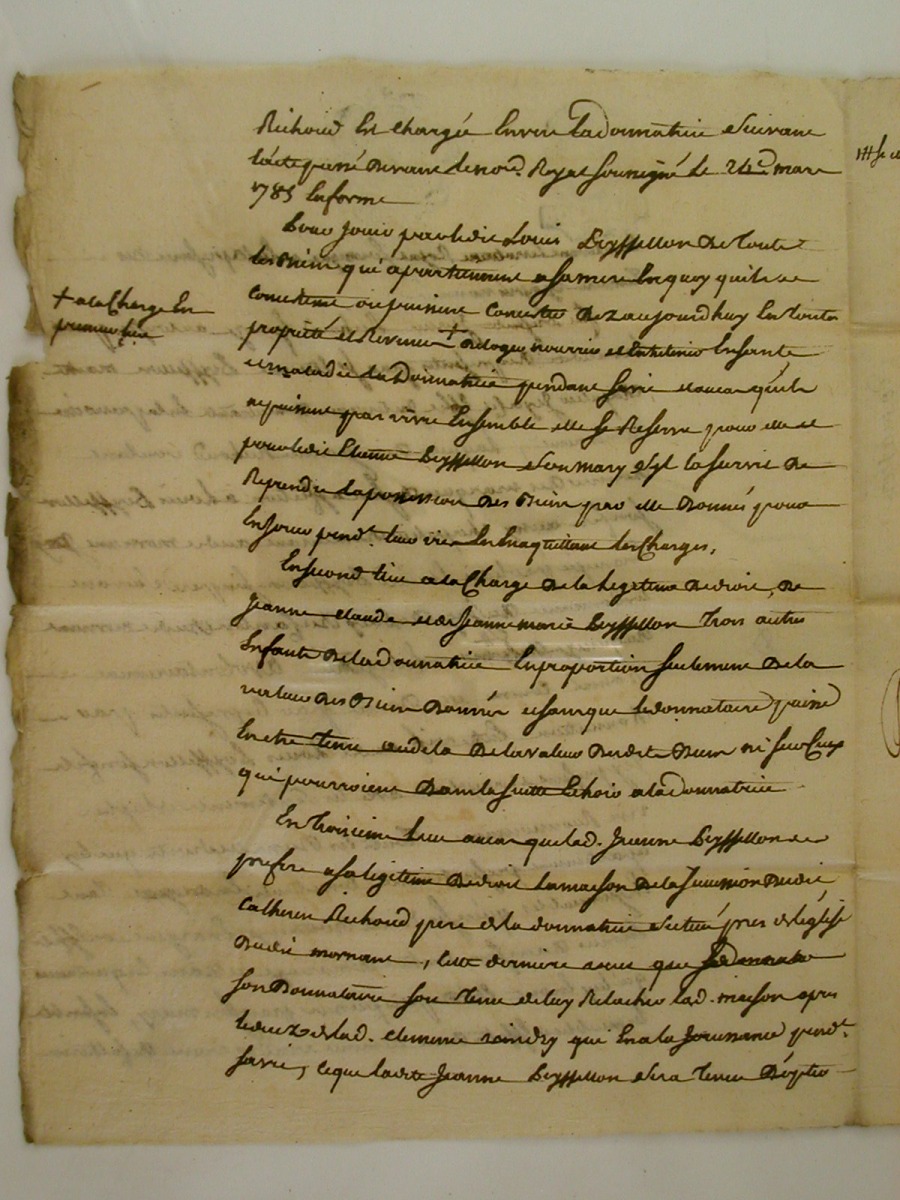 Richoud est chargée envers la donnatrice suivant
l'acte passé devant le no.re Royal soussigné le 24 mars
1785 en forme
Pour jouir par ledit Louis Peyssellon de toute
les Biens qui apartiennent a sa mere en quoy quils se
concistent ou puissent concister dez aujourdhuy en toute
propriété et Revenus + de loger nourrir et entretenir en santé
et maladie la Donnatrice pendant sa vie et au cas qu'ils
ne puissent pas vivre Ensemble elle se Reserve pour elle et
pour ledit Etienne Peyssellon son mary s'yl la survit de
Reprendre la possession des Biens par elle Donnés pour
en jouir pend.t leur vie en en aquittant les Charges,
+ a la Charge en
premier lieu
En second lieu a la Charge de la legitime de droit, de
Jeanne claude et de Jeanne marie Peyssellon Trois autres
Enfants de la donnatrice en proportion seulement de la
valeur des Biens Donnés et sans que le donnataire puisse
en etre tenu au dela de la valeur desdits Biens ni
qui pourroient dans la suitte Echoir a la donnatrice
En troisieme lieu au cas que lad. Jeanne Peyssellon
prefere a sa legitime de droit la maison de la succession dudit
Catherin Richoud pere de la donnatrice située pres de l'église
dudit mornant, cette derniere veut que
son Donnataire soit Tenu de luy Relacher lad. maison apres
le decez de lad. clemence qui en a la Jouissance pend.t
sa vie, ce que ladite Jeanne Peyssellon sera tenue d'opter